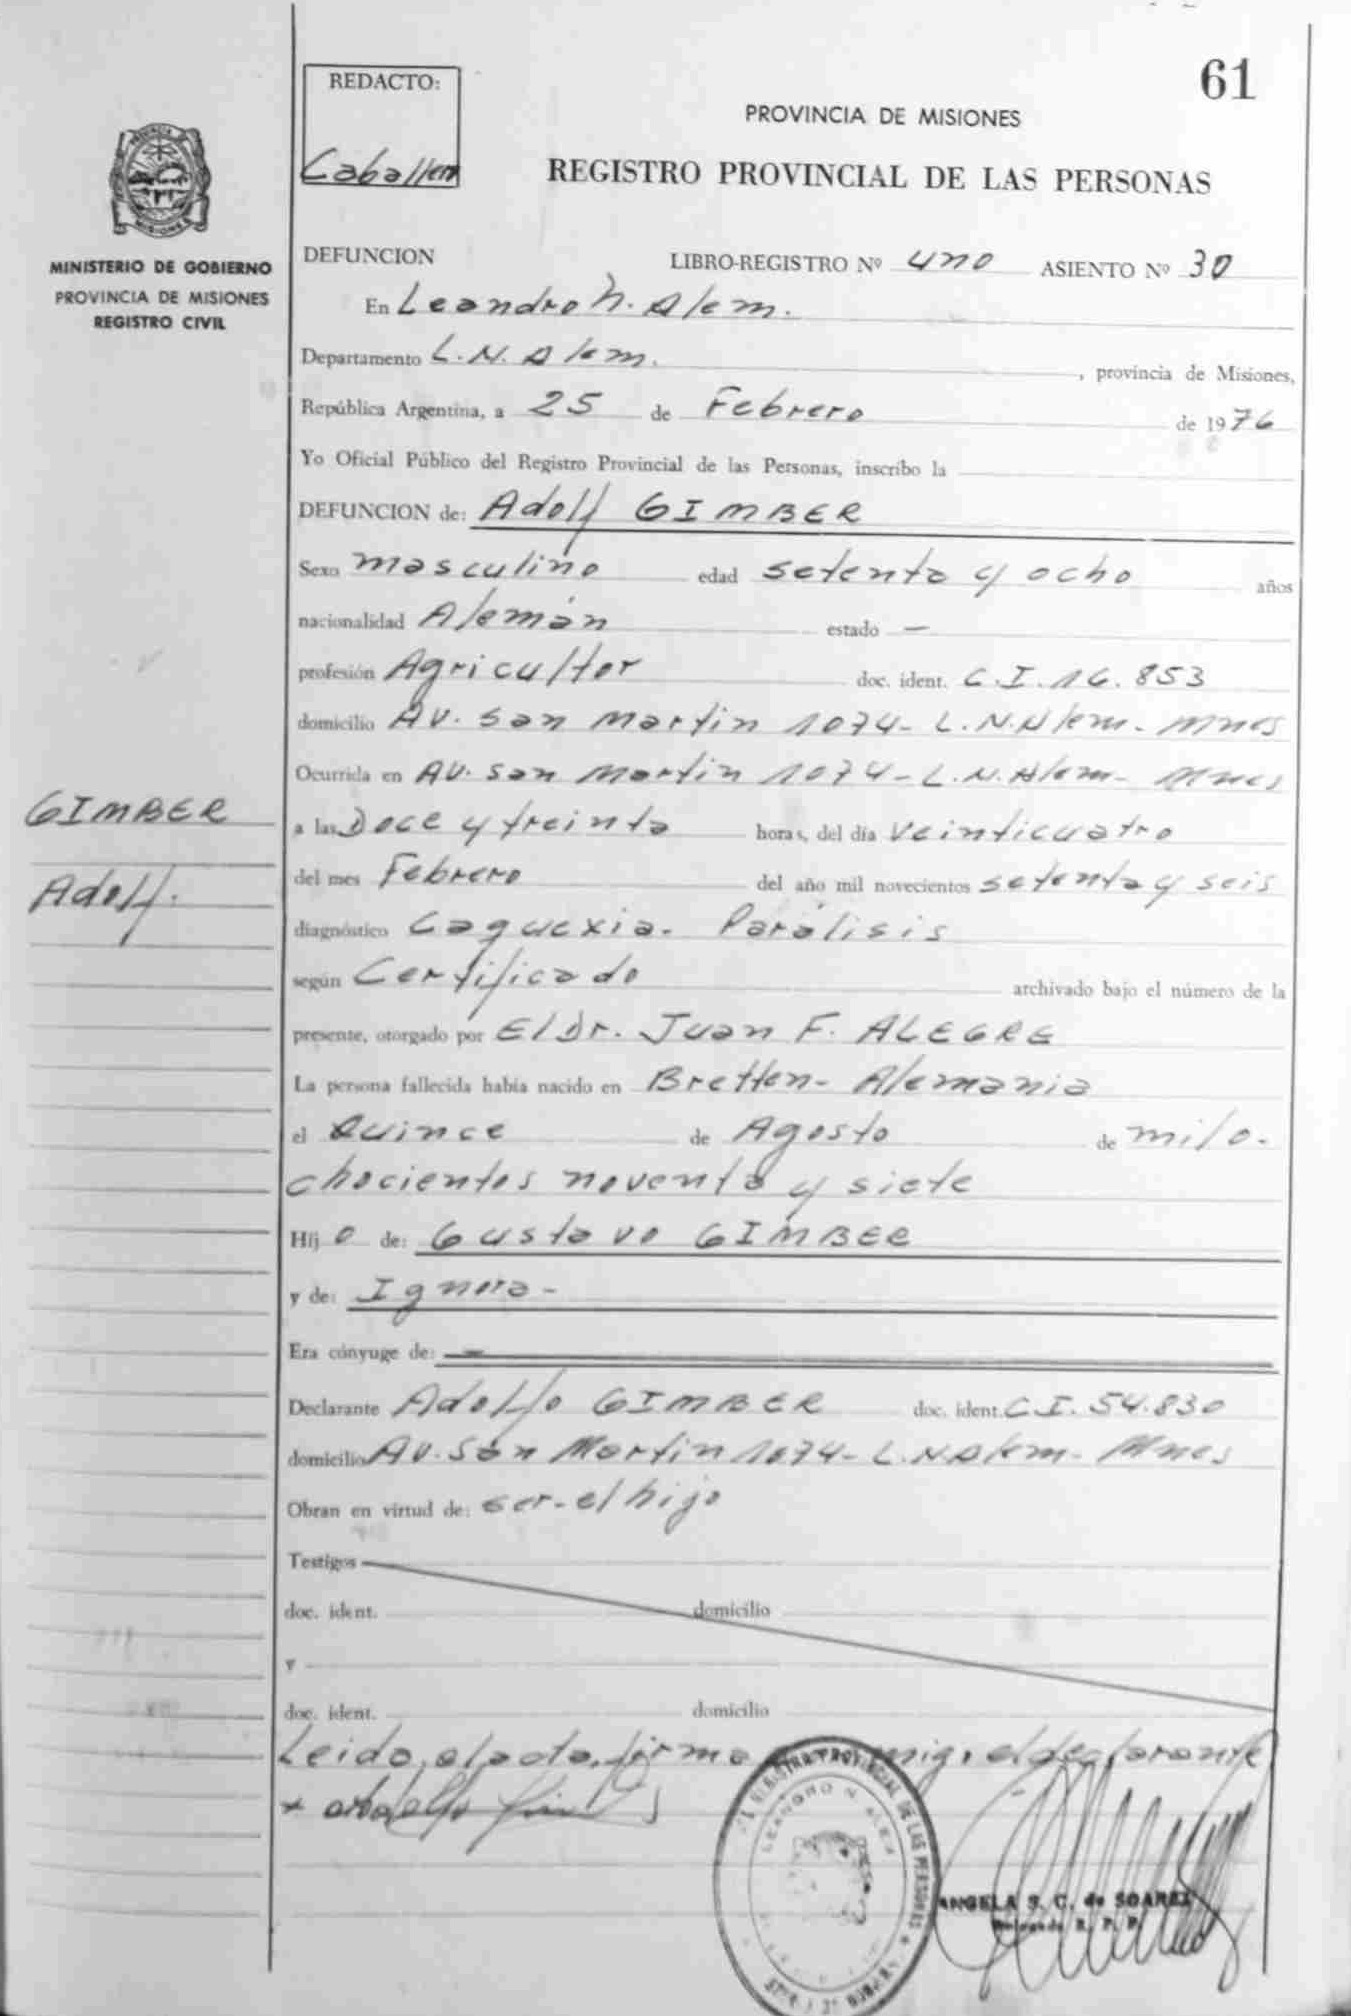 61
REDACTO:
PROVINCIA DE MISIONES
REGISTRO PROVINCIAL DE LAS PERSONAS
MINISTERIO DE GOBIERNO
PROVINCIA DE MISIONES
REGISTRO CIVIL
DEFUNCION LIBRO-REGISTRO Nº uno ASIENTO Nº 30
En Leandro N. Alem.
Departamento L.N. Alem. , provincia de Misiones,
República Argentina, a 25 de Febrero de 1976
Yo Oficial Público del Registro Provincial de las Personas, inscribo la
DEFUNCION de: Adolf GIMBER
Sexo masculino edad setenta y ocho años
nacionalidad Alemán estado —
profesión Agricultor doc. ident. C.I. 16.853
domicilio AV. San Martin 1074- L.N.Alem- Mnes
Ocurrida en AV. San Martin 1074- L.N.Alem- Mnes
GIMBER
Adolf.
a las Doce y treinta horas, del día veinticuatro
del mes Febrero del año mil novecientos setenta y seis
diagnóstico Caquexia- Parálisis
según Certificado archivado bajo el número de la
presente, otorgado por El Dr. Juan F. ALEGRE
La persona fallecida había nacido en Bretten- Alemania
el Quince de Agosto de mil o-
chocientos noventa y siete
Hijo de: Gustavo GIMBER
y de: Ignora-
Era cónyuge de: —
Declarante Adolfo GIMBER doc. ident. C.I. 54.830
domicilio AV. San Martin 1074- L.N.Alem- Mnes
Obran en virtud de: ser-el hijo
Testigos
doc. ident. domicilio
y
doc. ident. domicilio
Leido el acta, firma mig, el declarante
LEANDRO N. ALEM
ANGELA S. C. de SOAREZ
R. P. P.